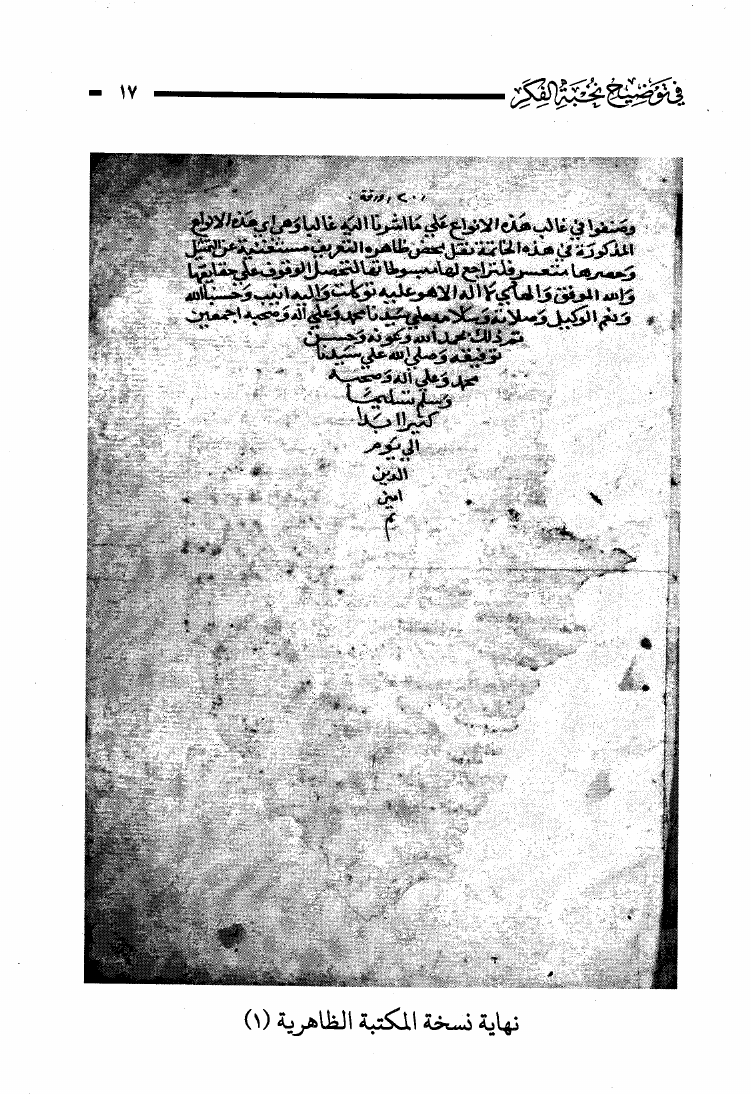 في توضيح نخبة الفكر
١٧
٢٠ ورقة
وصنفوا في غالب هذه الانواع علي ما اشرنا اليه غالبا وهي اي هذه الانواع
المذكورة في هذه الخاتمة نقل محض ظاهرة التعريف مستغنية عن التمثيل
وحصرها متعسر فلتراجع لها مبسوطاتها لتحصل الوقوف علي حقايقها
والله الموفق والهادي لا اله الا هو عليه توكلت واليه انيب وحسبنا الله
ونعم الوكيل وصلاته وسلامه علي سيدنا محمد وعلي اله وصحبه اجمعين
تم ذلك بحمد الله وعونه وحسن
توفيقه وصلي الله علي سيدنا
محمد وعلي اله وصحبه
وسلم تسليما
كثيرا ابدا
الي يوم
الدين
امين
تم
نهاية نسخة المكتبة الظاهرية (١)